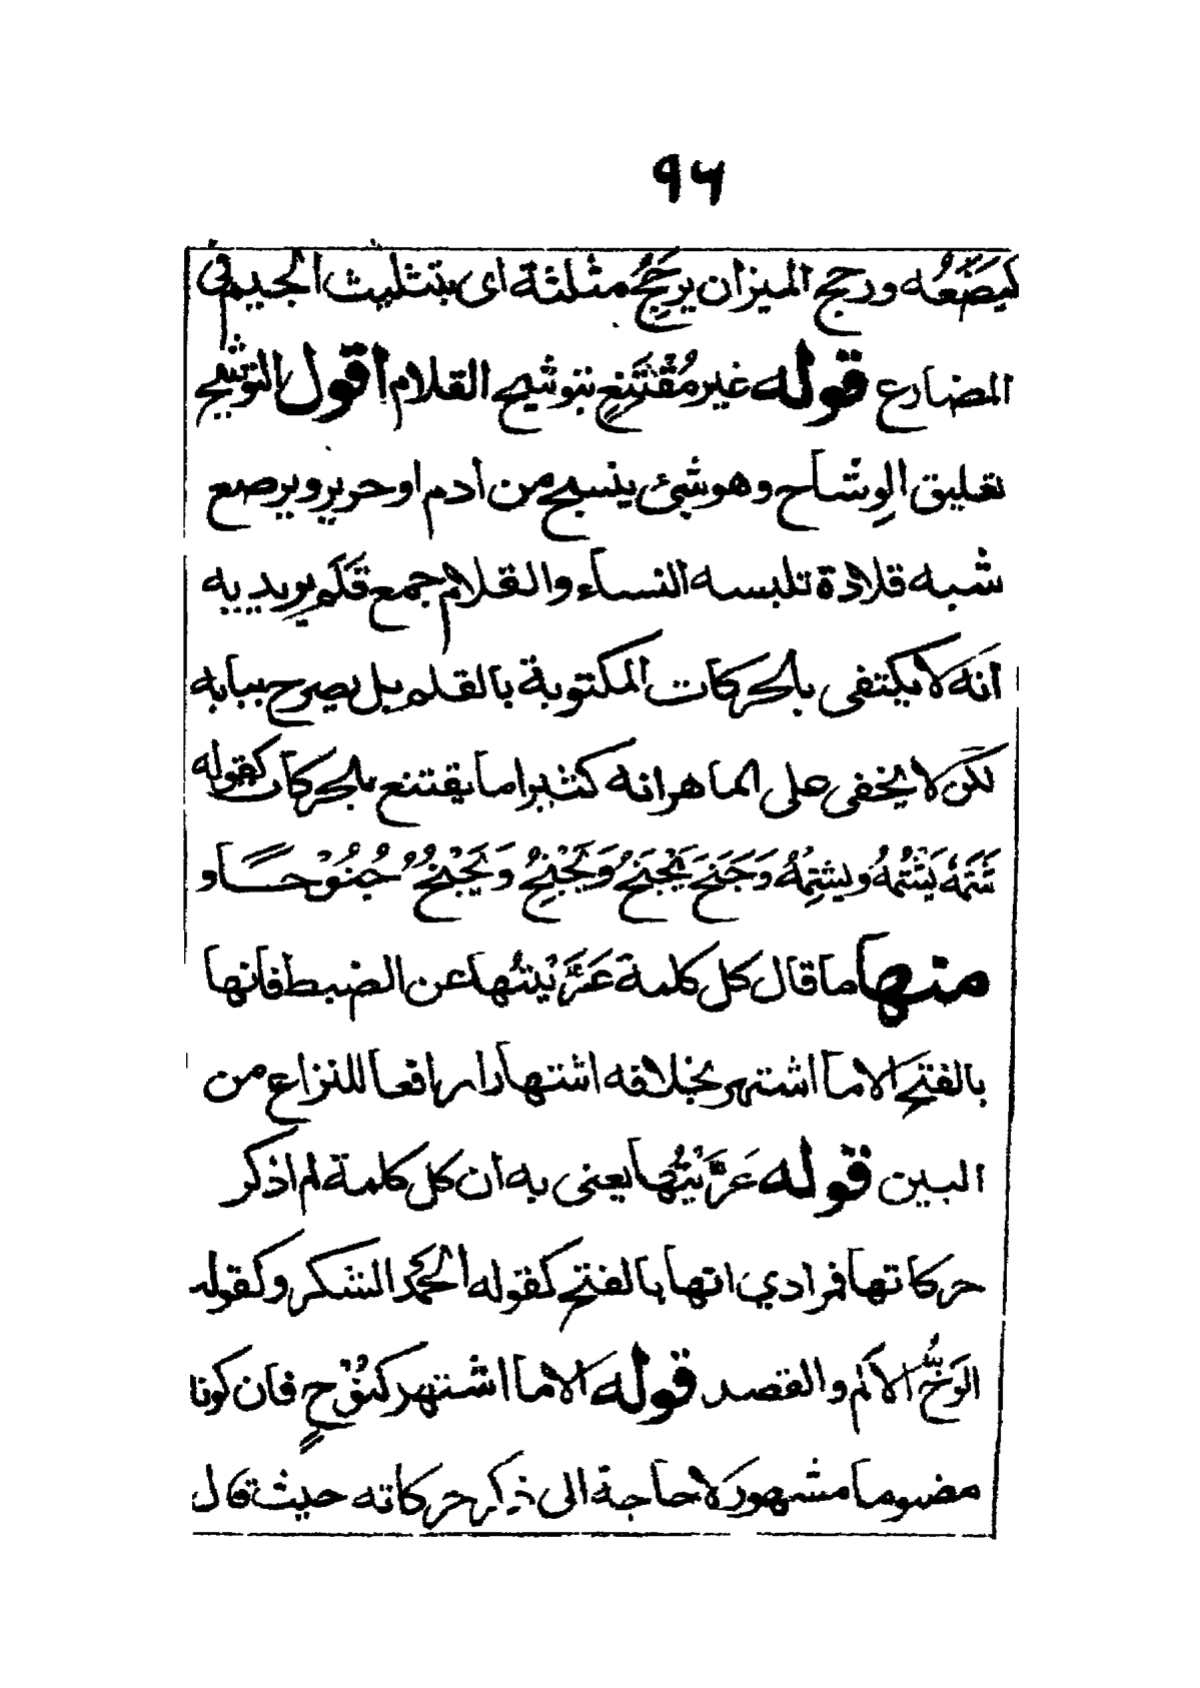 ۹۶
كيَضَعُه ورجح الميزان يرجَحُ مثلثة اى بتثليث الجيم فى
المضارع قوله غير مُقْتَنِعٍ بتوشيح القلام اقول التوشيح
تعليق الوِشاح وهو شئ ينسج من أدم او حرير ويرصع
شبه قلادة تلبسه النساء والقلام جمع قَلَم يريد به
انه لا يكتفى بالحركات المكتوبة بالقلم بل يصرح ببابه
لكن لا يخفى على الماهر انه كثيرا ما يقتنع بالحركات كقوله
شَتَمَهُ يَشْتُمُهُ ويشتِمُهُ وَجَنَحَ يَجْنَحُ وَيَجْنِحُ وَيَجْنُحُ جُنُوْحًا و
منها ما قال كل كلمة عَرَّيْتُها عن الضبط فانها
بالفتح الا ما اشتهر بخلافه اشتهارا رافعا للنزاع من
البين قوله عَرَّيْتُها يعنى به ان كل كلمة لم اذكر
حركاتها فرادي انها بالفتح كقوله الحَمْد الشكر وكقوله
الوَخُّ الاَلَم والقصد قوله الا ما اشتهر كنُوْحٍ فان كونا
مضموما مشهور لا حاجة الى ذكر حركاته حيث قال